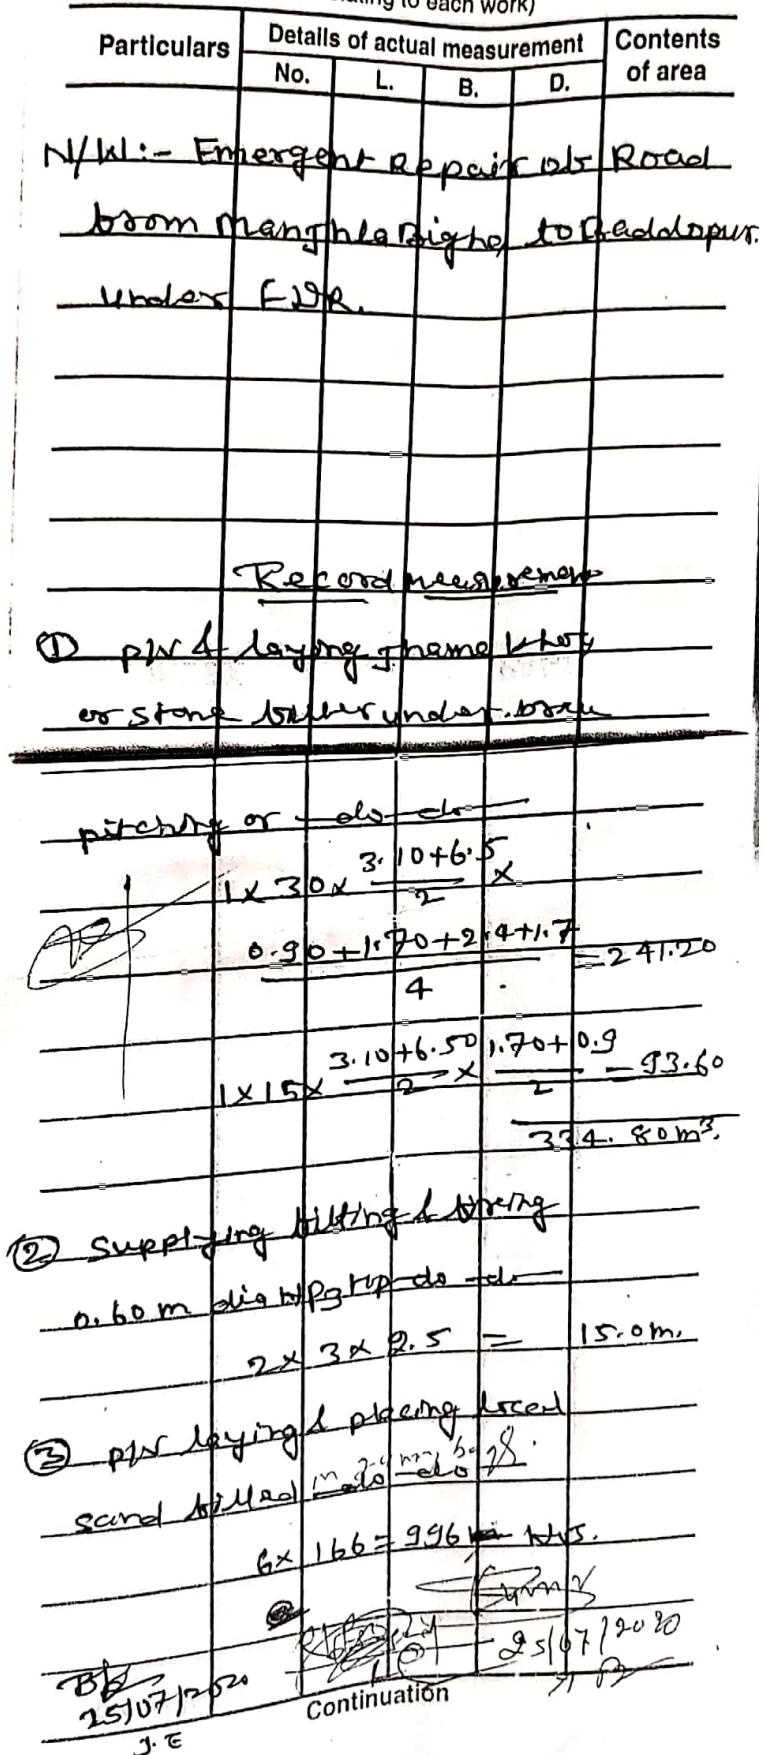 each work)
Particulars Details of actual measurement Contents of area
No. L. B. D.
N/W:- Emergent Repair of Road
from Manjhla Bigha to
under FDR.
Record measurement
① P/W & laying Jhama khoa
or stone under.
pitching or -do-do-
1 x 30 x (3.10+6.5)/2 x
(0.90+1.70+2.4+1.7)/4 = 241.20
1 x 15 x (3.10+6.50)/2 x (1.70+0.9)/2 = 93.60
334.80m³.
② Supplying fitting & fixing
0.60m dia -do-do-
2 x 3 x 2.5 = 15.0m.
③ P/W laying & placing local
sand filled in bags. -do-do-
6 x 166 = 996 Nos.
25/07/2020
25/07/2020
J.E
Continuation